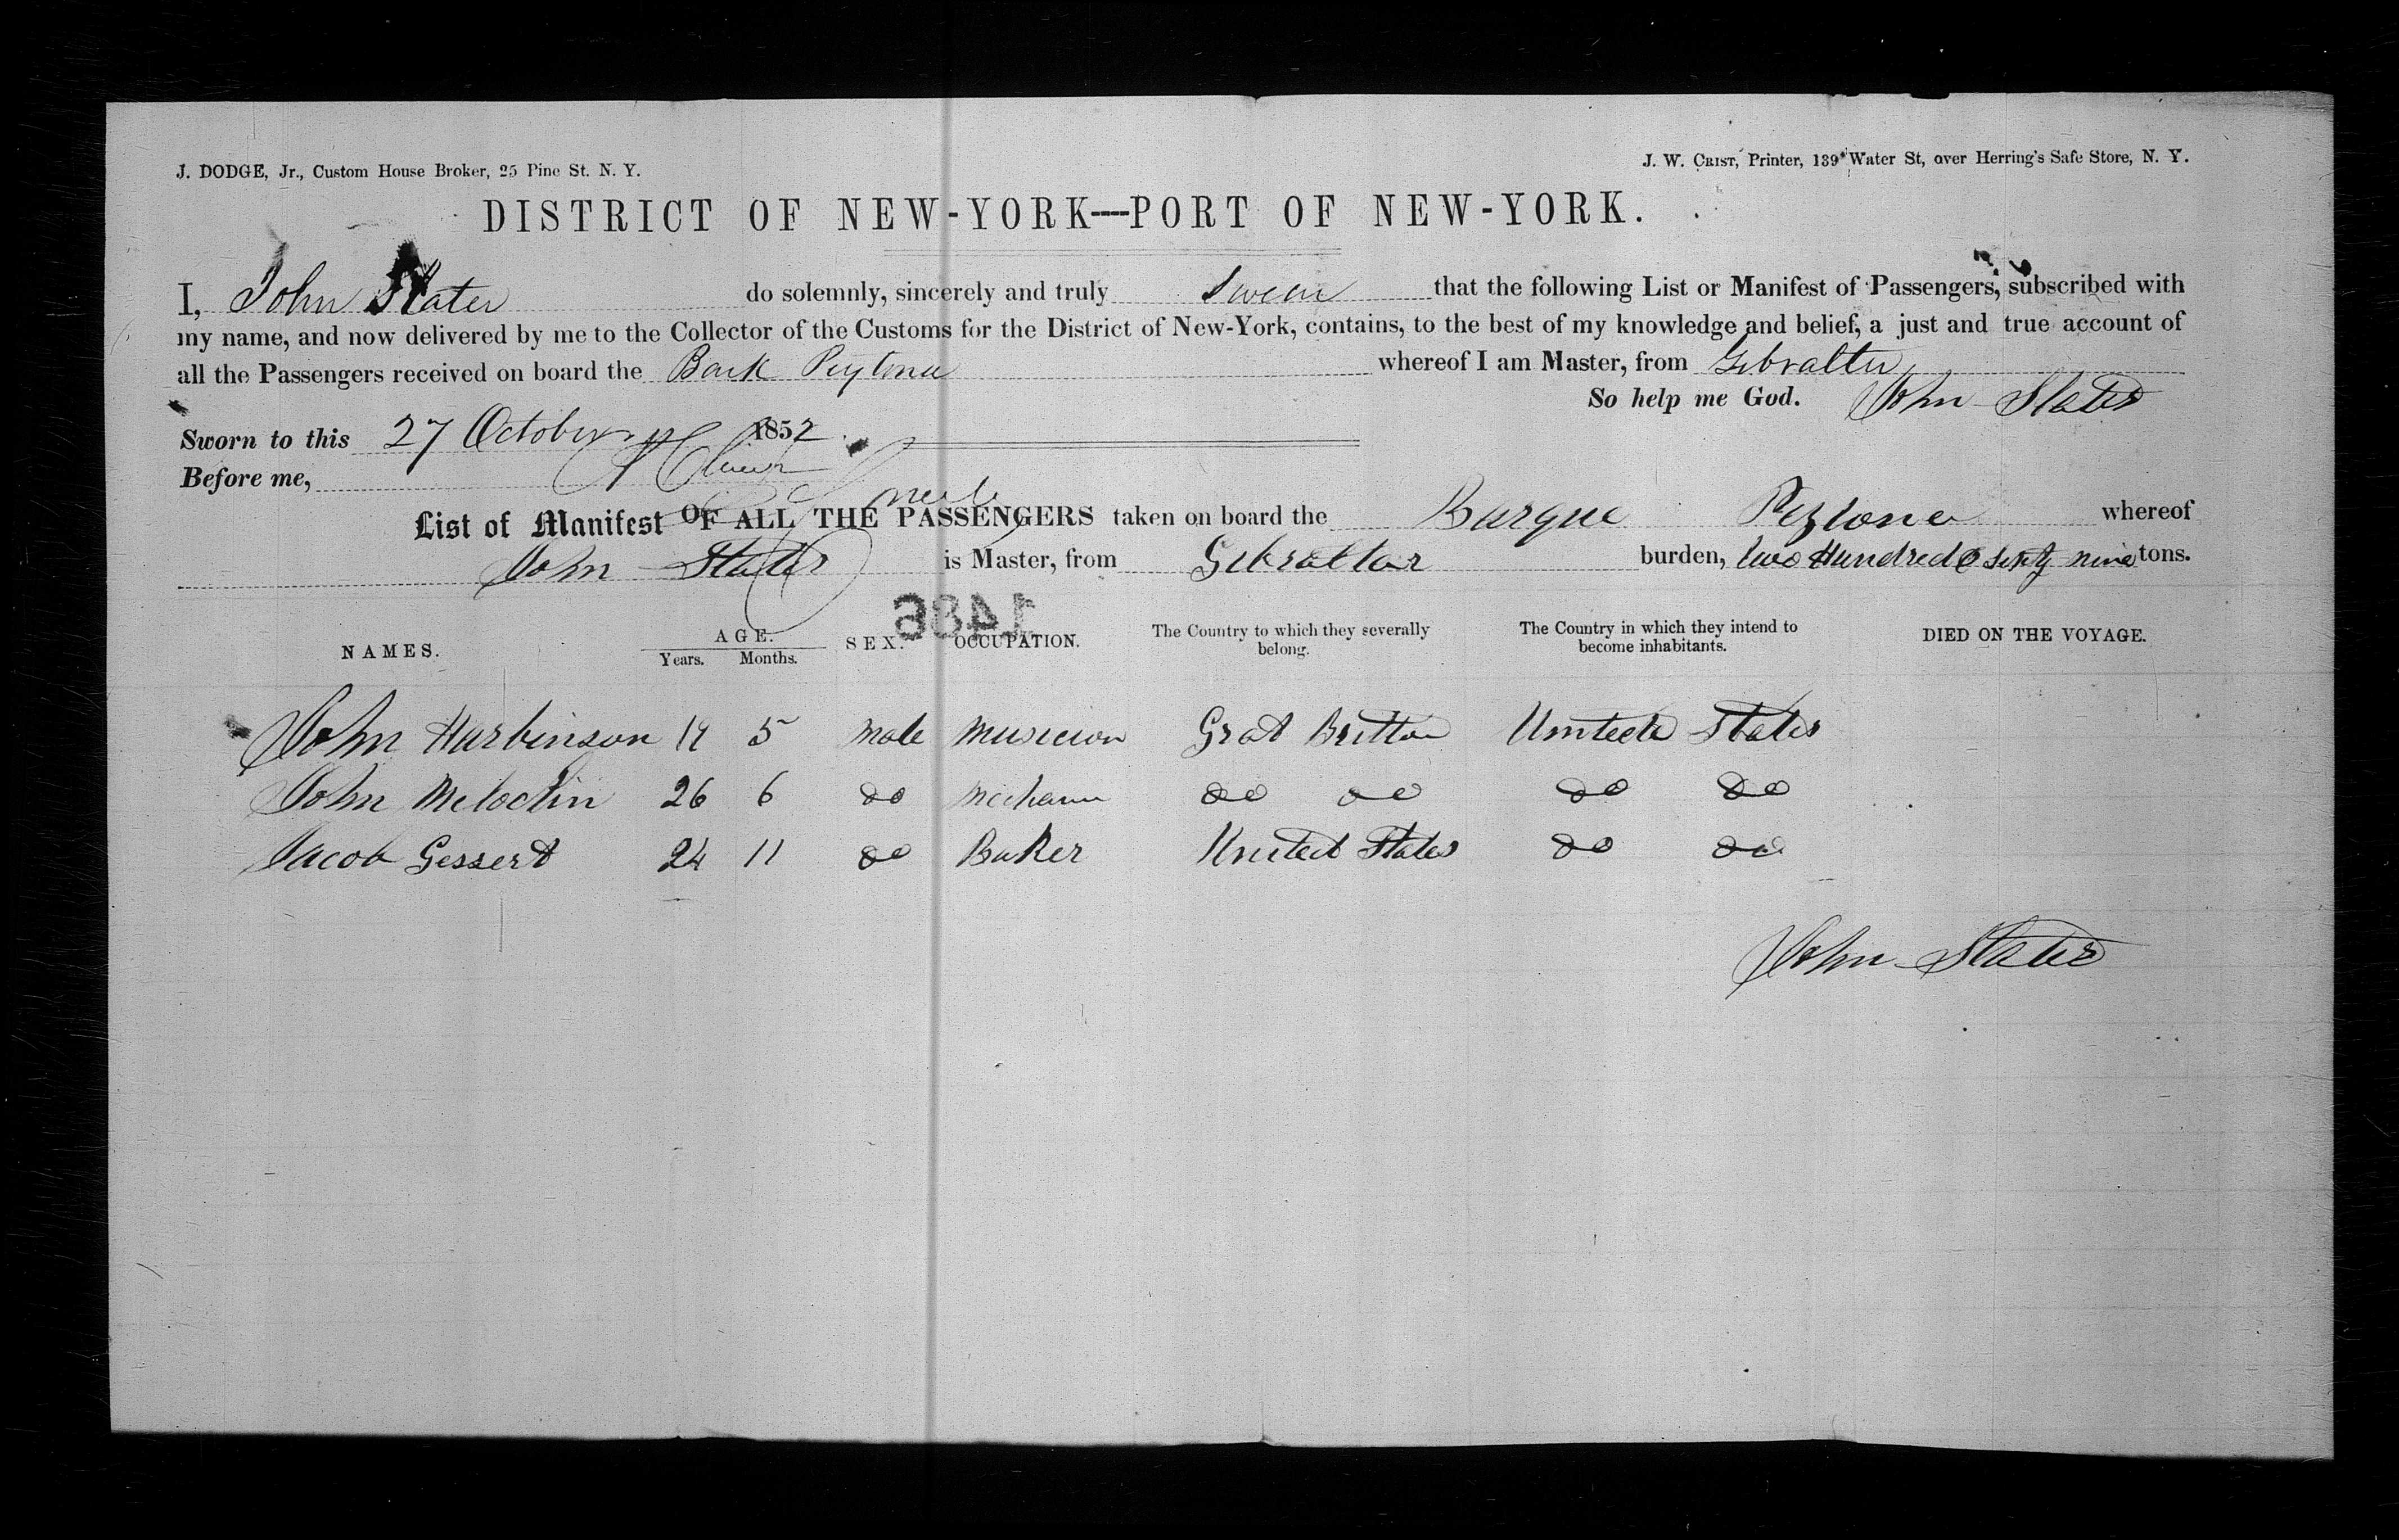 J. DODGE, Jr., Custom House Broker, 25 Pine St. N. Y.
J. W. CRIST, Printer, 139 Water St, over Herring's Safe Store, N. Y.
DISTRICT OF NEW-YORK—PORT OF NEW-YORK.
I, John Slater do solemnly, sincerely and truly Swear that the following List or Manifest of Passengers, subscribed with
my name, and now delivered by me to the Collector of the Customs for the District of New-York, contains, to the best of my knowledge and belief, a just and true account of
all the Passengers received on board the Bark Peytona whereof I am Master, from Gibralter
So help me God. John Slater
Sworn to this 27 October 1852
Before me,
List of Manifest OF ALL THE PASSENGERS taken on board the Barque Peytona whereof
John Slater is Master, from Gibraltar burden, two Hundred & sixty nine tons.
1486
NAMES. AGE. Years. Months. SEX. OCCUPATION. The Country to which they severally belong. The Country in which they intend to become inhabitants. DIED ON THE VOYAGE.
John Harbinson 19 5 male musicion Grat Britton Unitede States
John 26 6 do do do do do
Jacob Gessert 24 11 do Baker United States do do
John Slater